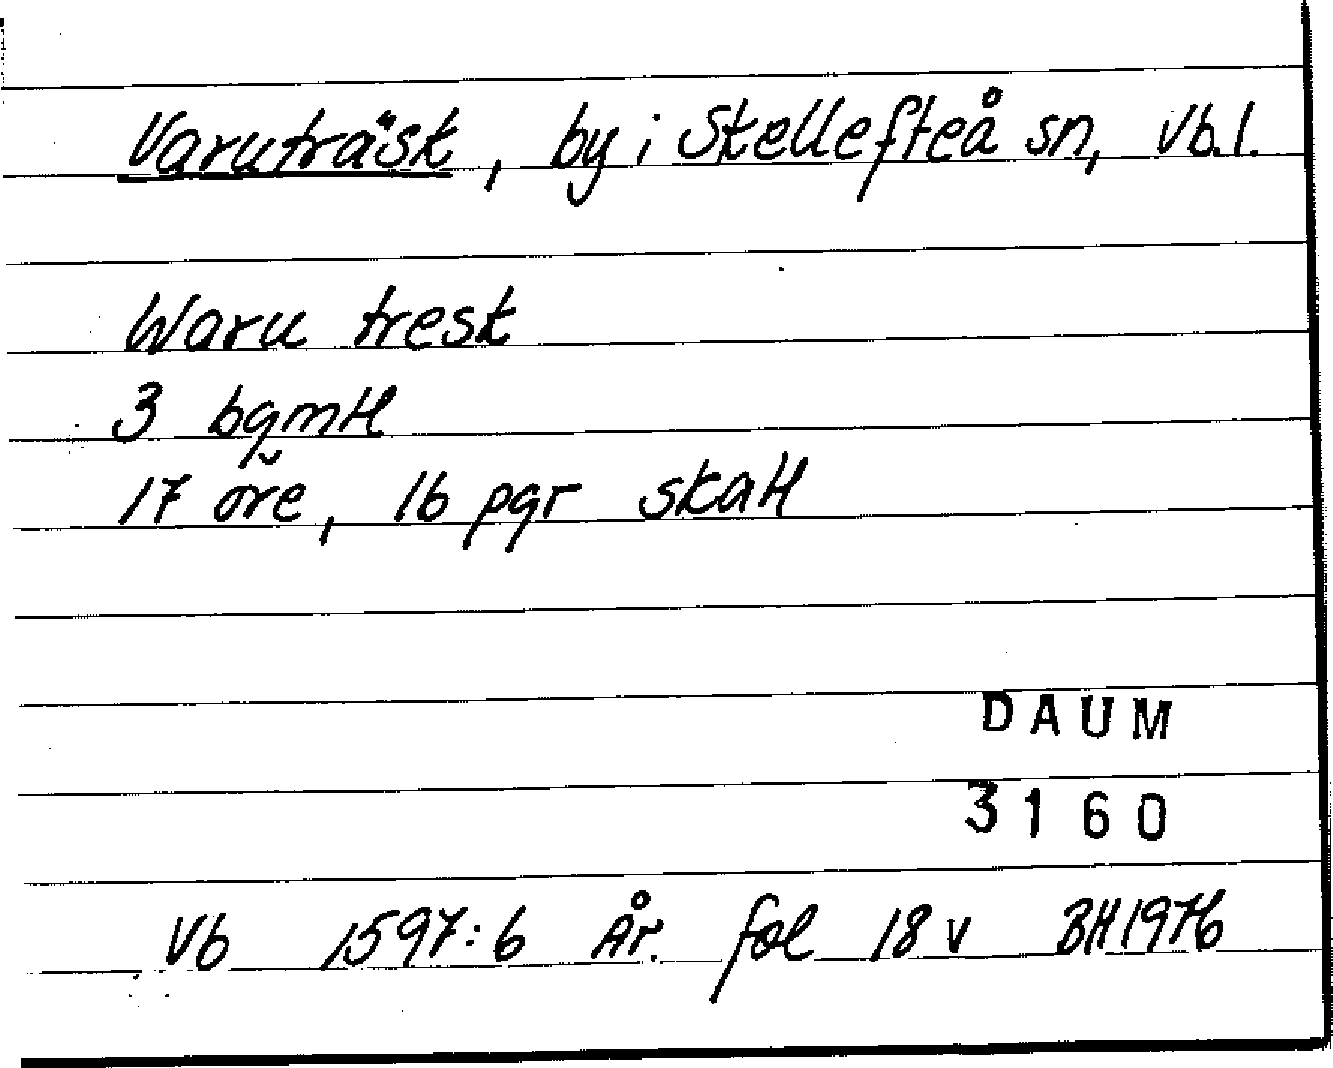 Varuträsk, by i Skellefteå sn, Vb.l.
Waru tresk
3 bgmtl
17 öre, 16 pgr skatt
DAUM
3160
Vb 1597:6 År. fol 18 v BH 1976